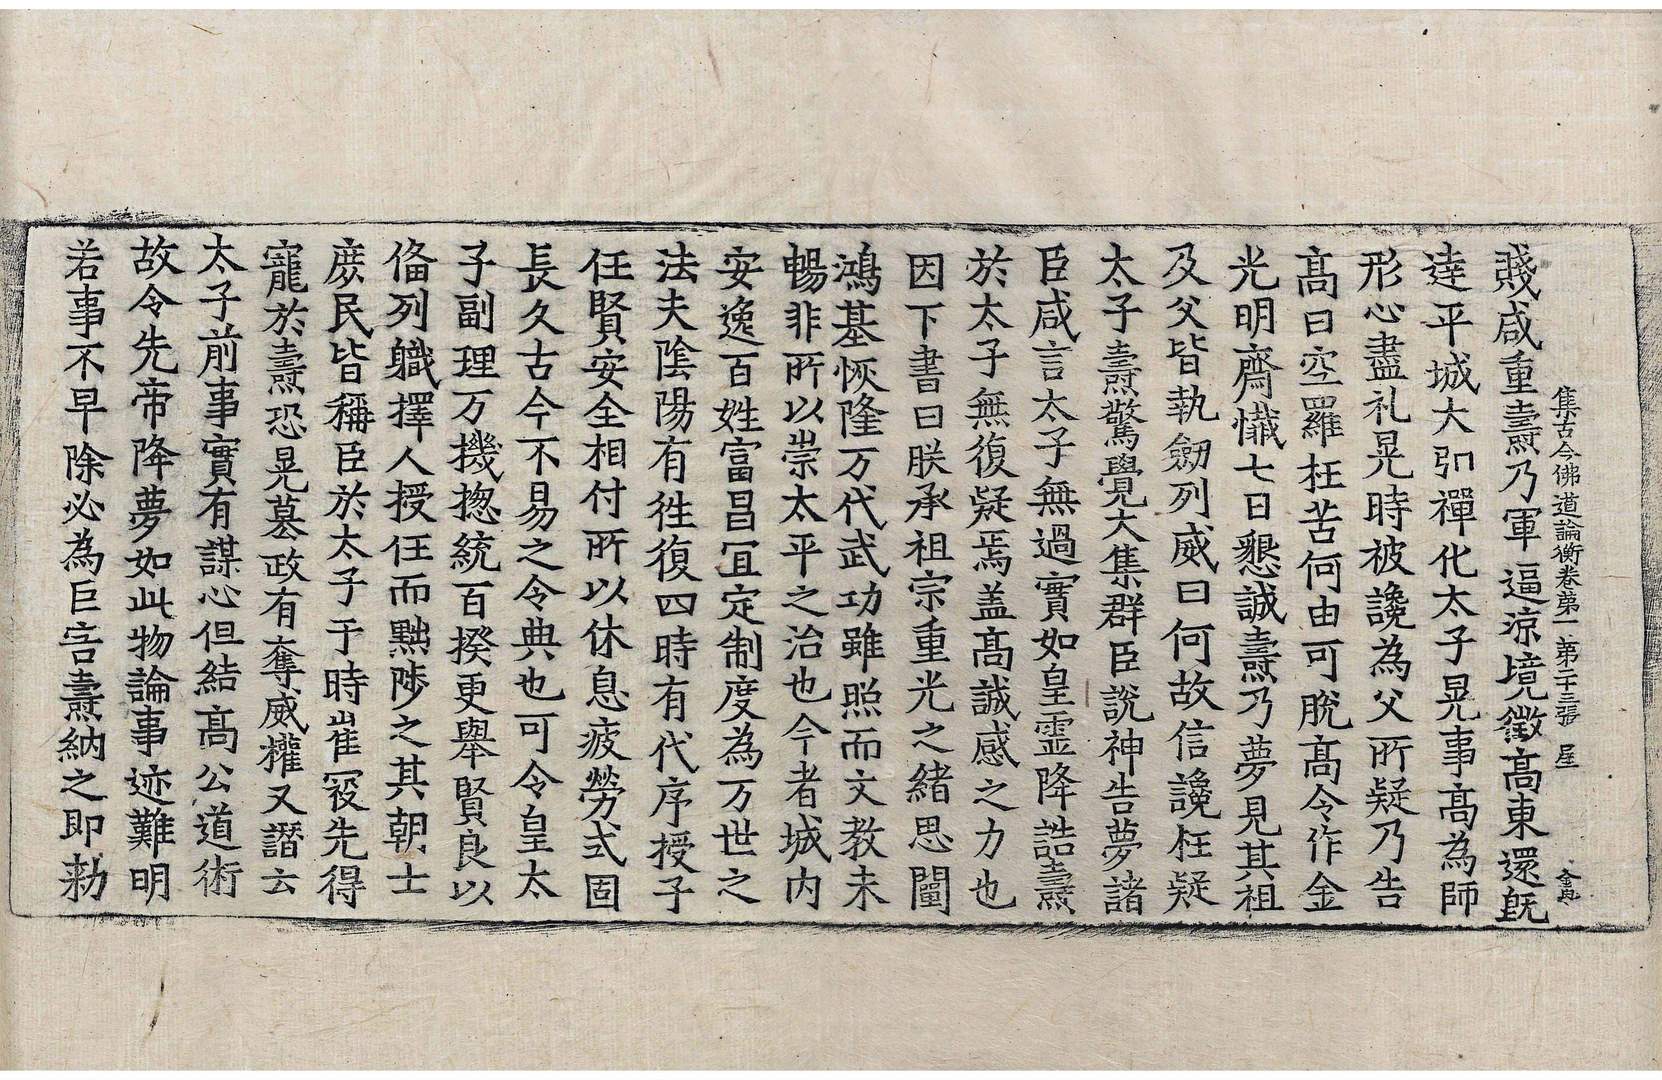 集古今佛道論衡卷第一　第二十三張　星
賤咸重燾乃軍逼涼境徵高東還旣
達平城大弘禪化太子晃事高為師
形心盡礼晃時被讒為父所疑乃告
高曰空羅枉苦何由可脫高令作金
光明齋懺七日懇誠燾乃夢見其祖
及父皆執劒列威曰何故信讒枉疑
太子燾驚覺大集群臣說神告夢諸
臣咸言太子無過實如皇霊降誥燾
於太子無復疑焉盖高誠感之力也
因下書曰朕承祖宗重光之緒思闡
鴻基恢隆万代武功雖照而文教未
暢非所以崇太平之治也今者城內
安逸百姓富昌冝定制度為万世之
法夫陰陽有徃復四時有代序授子
任賢安全相付所以休息疲勞式固
長久古今不易之令典也可令皇太
子副理万機揔統百揆更舉賢良以
俻列職擇人授任而黜陟之其朝士
庶民皆稱臣於太子于時崔寇先得
寵於燾恐晃墓政有奪威權又譖云
太子前事實有謀心但結高公道術
故令先帝降夢如此物論事迹難明
若事不早除必為巨害燾納之即勑